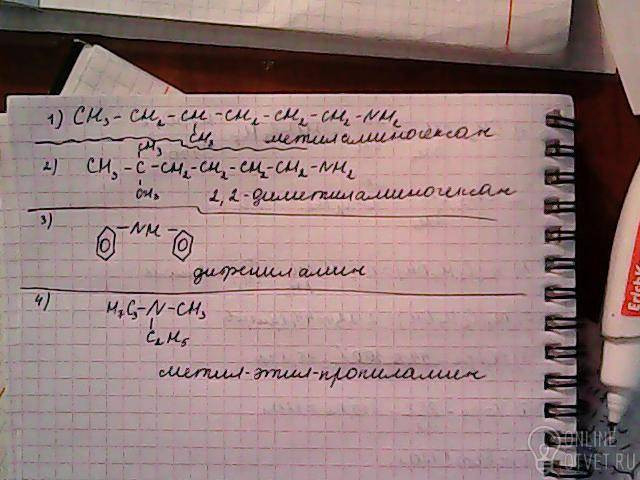 1) CH3 - CH2 - CH - CH2 - CH2 - CH2 - NH2
CH3 метиламиногексан
CH3
2) CH3 - C - CH2 - CH2 - CH2 - CH2 - NH2
CH3 2,2-диметиламиногексан
3) - NH -
дифениламин
4) H7C3 - N - CH3
C2H5
метил-этил-пропиламин
ErichK
ONLINE
OTVET.RU